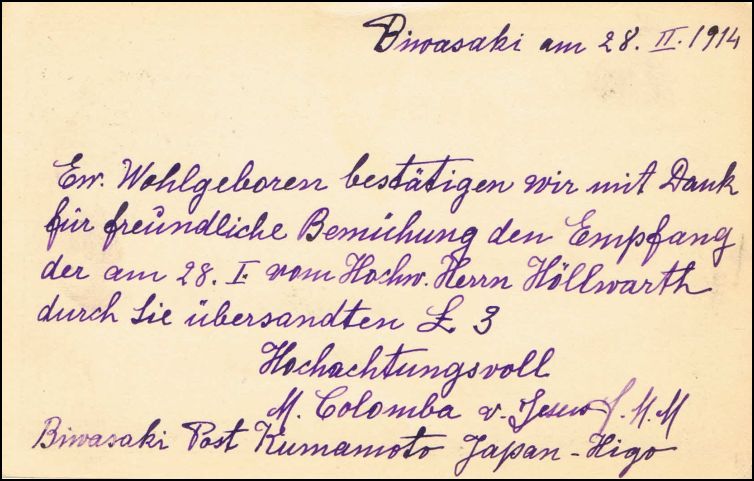 Biwasaki am 28. II. 1914
Ew. Wohlgeboren bestätigen wir mit Dank
für freundliche Bemühung den Empfang
der am 28. I. vom Hochw. Herrn Höllwarth
durch Sie übersandten £ 3
Hochachtungsvoll
M. Colomba v. Jesus f. M. M
Biwasaki Post Kumamoto Japan - Higo